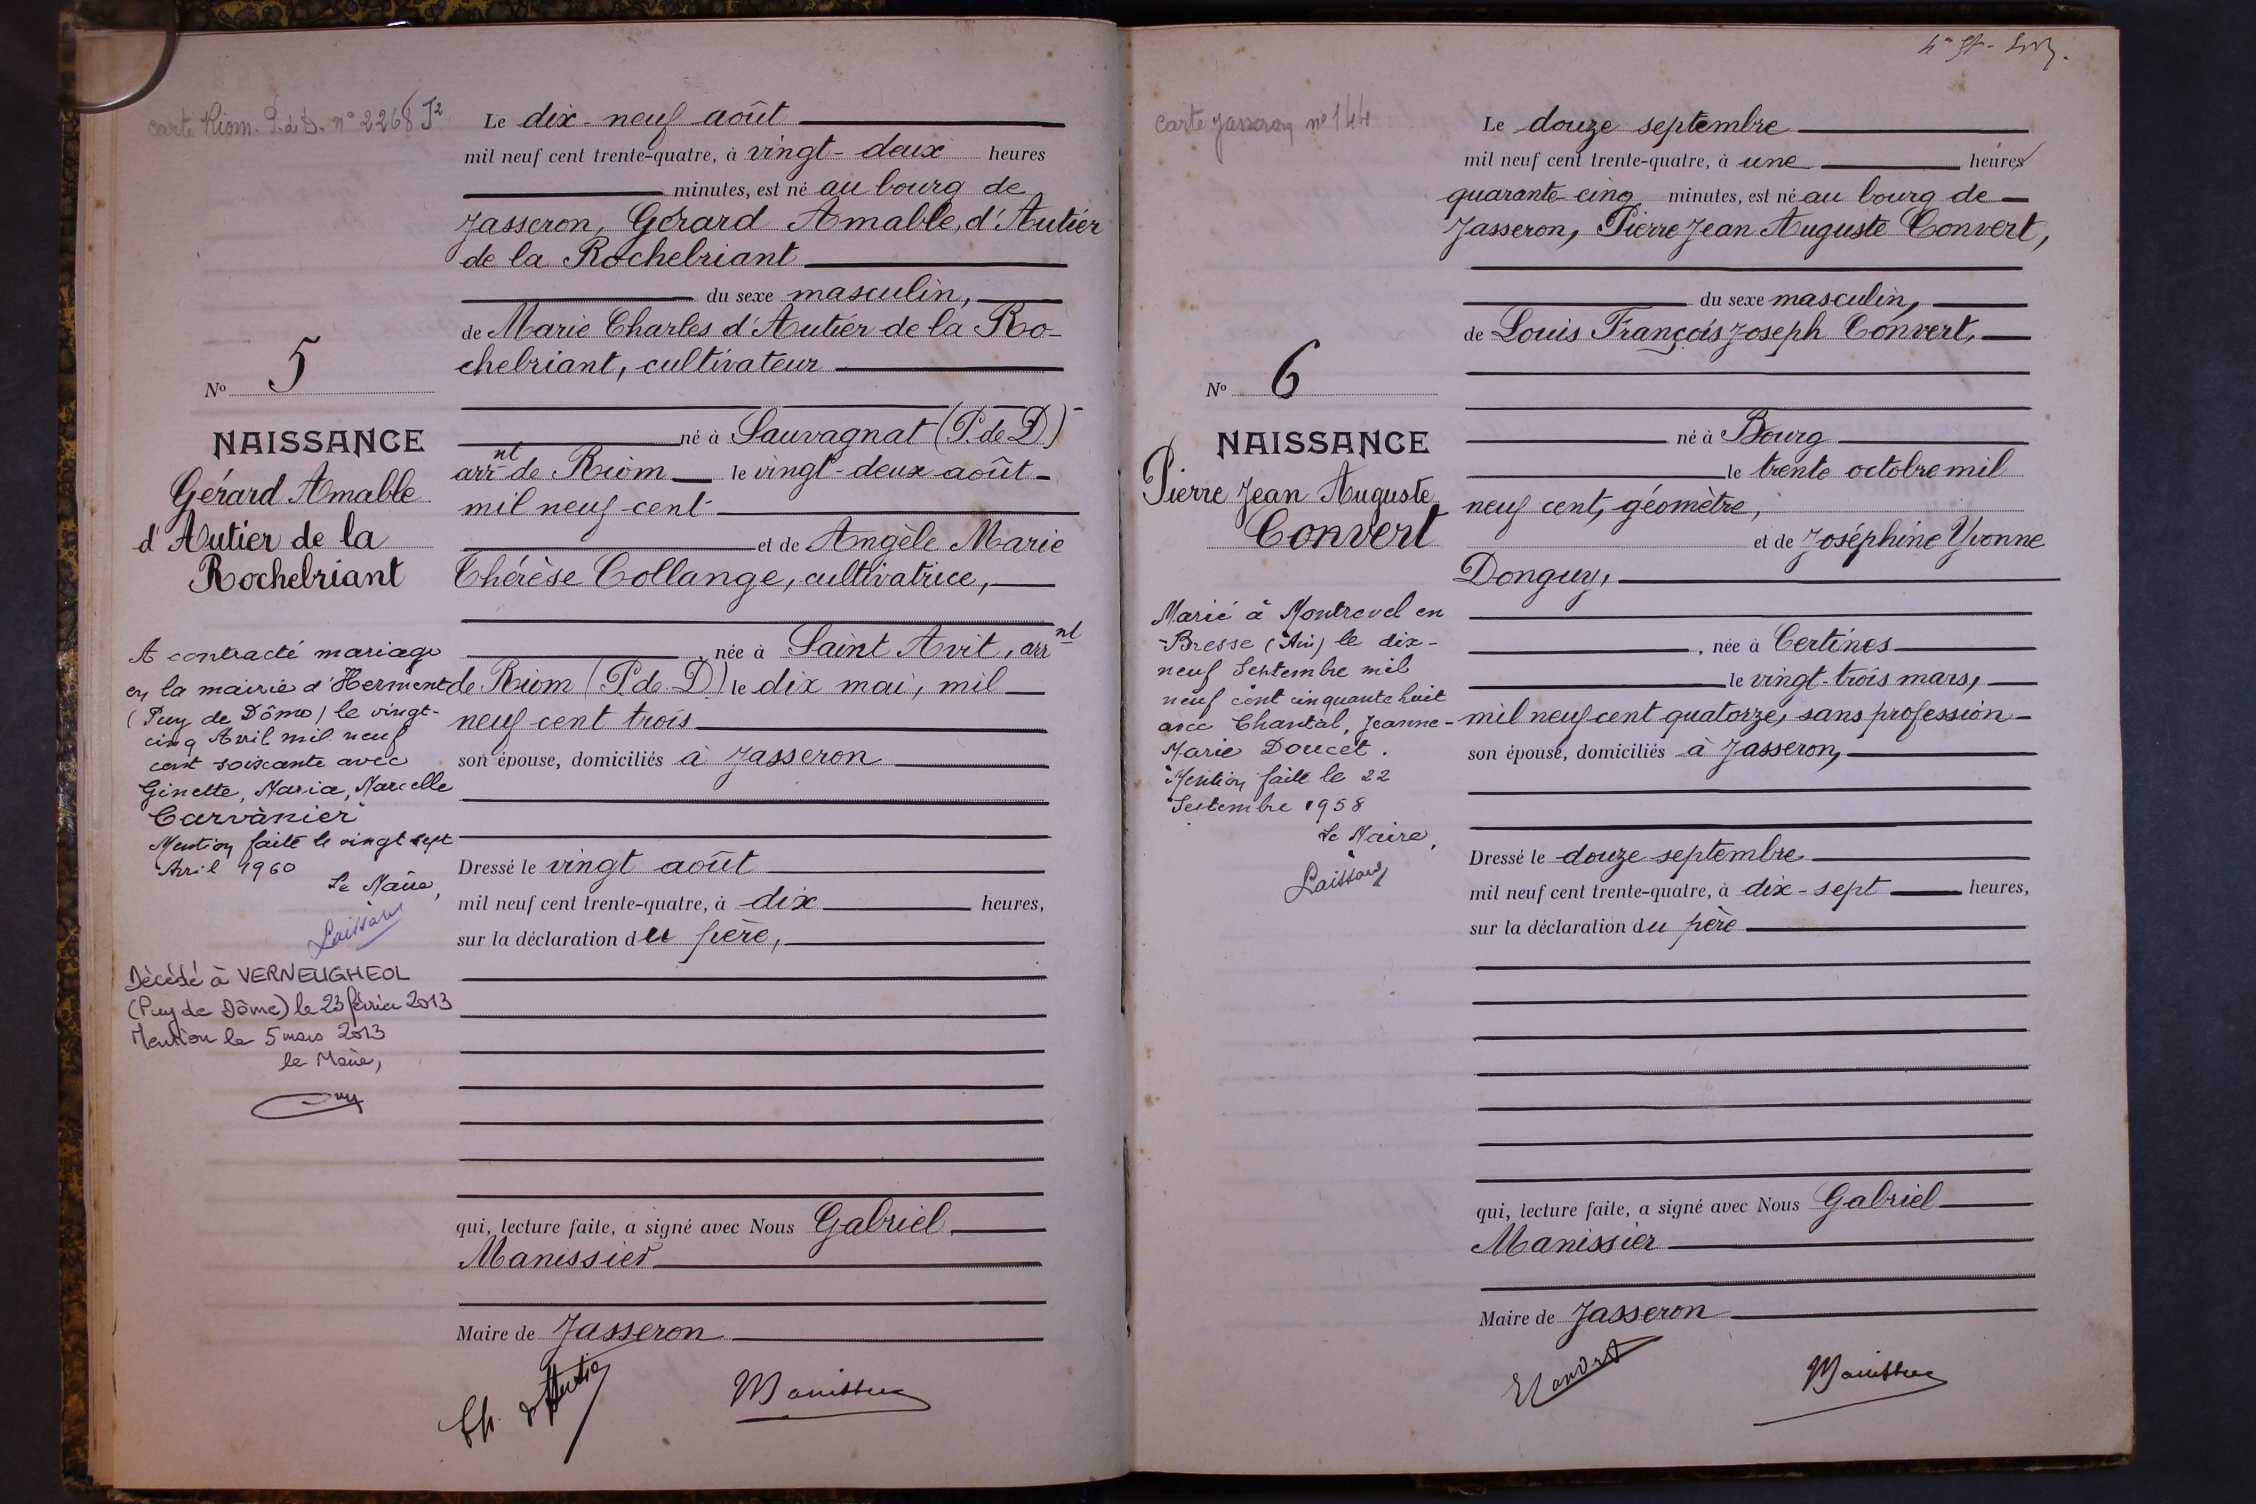 carte Riom. P. d D. n° 2268 J²
Le dix-neuf août
mil neuf cent trente-quatre, à vingt-deux heures
minutes, est né au bourg de
Jasseron, Gérard Amable, d'Autier
de la Rochebriant
du sexe masculin,
de Marie Charles d'Autier de la Ro-
chebriant, cultivateur
né à Sauvagnat (P. de D)
arrnt de Riom le vingt-deux août
mil neuf cent
et de Angèle Marie
Thérèse Collange, cultivatrice,
, née à Saint Avit, arrnt
de Riom (P. de D) le dix mai, mil
neuf cent trois
son épouse, domiciliés à Jasseron
Dressé le vingt août
mil neuf cent trente-quatre, à dix heures,
sur la déclaration du père,
qui, lecture faite, a signé avec Nous Gabriel
Manissier
Maire de Jasseron
Ch. d'Autier
Manissier
No 5
NAISSANCE
Gérard Amable
d'Autier de la
Rochebriant
A contracté mariage
en la mairie d'Herment
(Puy de Dôme) le vingt-
cinq Avril mil neuf
cent soixante avec
Ginette, Maria, Marcelle
Carvànier
Mention faite le vingt sept
Avril 1960
Le Maire,
Décédé à VERNEUGHEOL
(Puy de Dôme) le 23 février 2013
Mention le 5 mars 2013
le Maire,
carte Jasseron n° 144
Le douze septembre
mil neuf cent trente-quatre, à une heures
quarante-cinq minutes, est né au bourg de
Jasseron, Pierre Jean Auguste Convert,
du sexe masculin,
de Louis François Joseph Convert,
né à Bourg
le trente octobre mil
neuf cent, géomètre,
et de Joséphine Yvonne
Donguy,
, née à Certines
le vingt-trois mars,
mil neuf cent quatorze, sans profession
son épouse, domiciliés à Jasseron,
Dressé le douze septembre
mil neuf cent trente-quatre, à dix-sept heures,
sur la déclaration du père
qui, lecture faite, a signé avec Nous Gabriel
Manissier
Maire de Jasseron
Convert
Manissier
No 6
NAISSANCE
Pierre Jean Auguste
Convert
Marié à Montrevel en
-Bresse (Ain) le dix-
neuf Septembre mil
neuf cent cinquante huit
avec Chantal, Jeanne-
Marie Doucet.
Mention faite le 22
Septembre 1958
Le Maire,